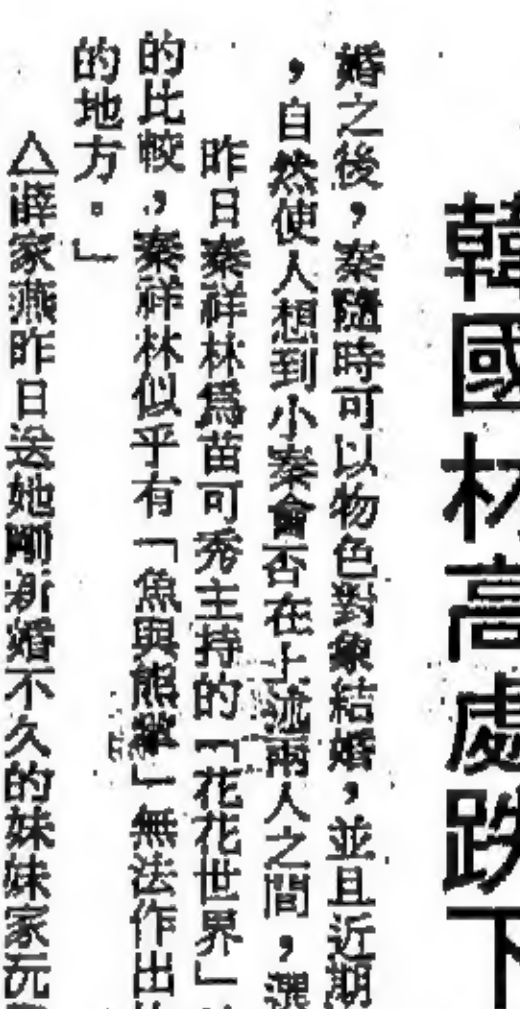 韓國材高處跌下
婚之後，秦隨時可以物色對象結婚，並且近期
，自然使人想到小秦會否在上述兩人之間，選
昨日秦祥林爲苗可秀主持的「花花世界」
的比較，秦祥林似乎有「魚與熊掌」無法作出
的地方。」
△薛家燕昨日送她剛新婚不久的妹妹家